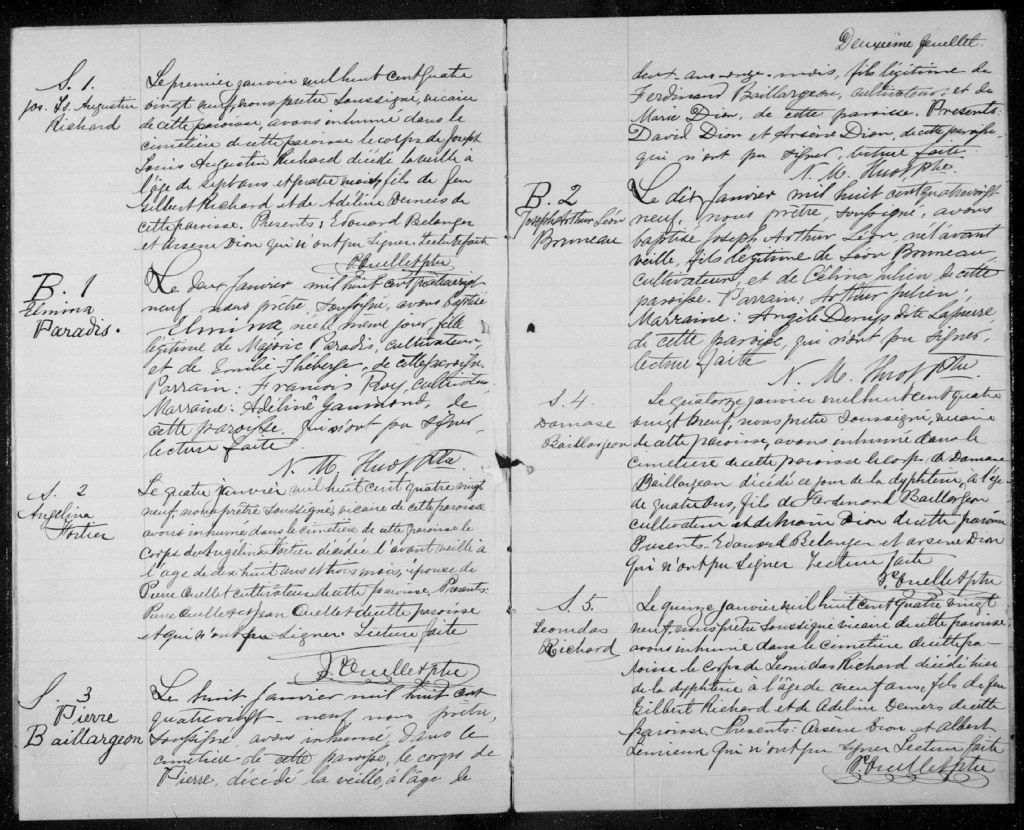 S. 1.
Jos. Ls. Augustin
Richard
Le premier janvier mil huit cent quatre
vingt neuf, nous prêtre soussigné, vicaire
de cette paroisse, avons inhumé dans le
cimetière de cette paroisse le corps de Joseph
Louis Augustin Richard décédé la veille à
l'âge de sept ans et quatre mois, fils de feu
Gilbert Richard et de Adéline Demers de
cette paroisse. Présents: Edouard Belanger
et Arsène Dion qui n'ont pu signer. Lecture faite
Ouellet ptre
B. 1
Elmina
Paradis.
Le deux janvier mil huit cent quatrevingt
neuf nous prêtre, soussigné, avons baptisé
Elmina, née le même jour, fille
légitime de Majoric Paradis, cultivateur,
et de Emilie Théberge, de cette paroisse.
Parrain: Francois Roy, cultivateur
Marraine: Adéline Gaumond, de
cette paroisse, qui n'ont pu signer,
lecture faite
N. M. Huot Ptre.
S. 2
Angelina
Fortier
Le quatre janvier mil huit cent quatre vingt
neuf, nous prêtre soussigné, vicaire de cette paroisse
avons inhumé dans le cimetière de cette paroisse le
corps de Angélina Fortier décédée l'avant veille à
l'age de dix huit ans et trois mois, épouse de
Ouellet cultivateur de cette paroisse. Présents:
Ouellet et Jean Ouellet de cette paroisse
et qui n'ont pu signer. Lecture faite
Ouellet ptre
S. 3
Pierre
Baillargeon
Le huit janvier mil huit cent
quatrevingt-neuf nous prêtre,
soussigné, avons inhumé dans le
cimetière de cette paroisse, le corps de
Pierre, décédé la veille, à l'âge de
Deuxième feuillet.
deux-ans-onze-mois, fils légitime de
Ferdinand Baillargeon, cultivateur; et de
Marie Dion, de cette paroisse. Présents:
David Dion et Arsène Dion, de cette paroisse,
qui n'ont pu signer, lecture faite.
N. M. Huot Ptre.
B. 2
Joseph Arthur Léon
Bruneau
Le dix janvier mil huit cent quatrevingt
neuf, nous prêtre, soussigné, avons
baptisé Joseph Arthur Léon, né l'avant
veille, fils légitime de Léon Bruneau,
cultivateur, et de Célina Julien, de cette
paroisse. Parrain: Arthur Julien;
Marraine: Angèle Denys dite Lapierre
de cette paroisse, qui n'ont pu signer,
lecture faite
N. M. Huot Ptre
S. 4.
Damase
Baillargeon
Le quatorze janvier mil huit cent quatre
vingt neuf, nous prêtre soussigné, vicaire
de cette paroisse, avons inhumé dans le
cimetière de cette paroisse le corps de Damase
Baillargeon décédé ce jour de la dyphterie, à l'âge
de quatre ans, fils de Ferdinand Baillargeon
cultivateur et de Marie Dion de cette paroisse
Présents. Edouard Belanger et Arsène Dion
qui n'ont pu signer Lecture faite
Ouellet ptre
S. 5.
Leonidas
Richard
Le quinze janvier mil huit cent quatre vingt
neuf, nous prêtre soussigné vicaire de cette paroisse
avons inhumé dans le cimetière de cette pa-
roisse le corps de Leonidas Richard décédé hier
de la dyphterie à l'âge de neuf ans, fils de feu
Gilbert Richard et de Adeline Demers de cette
paroisse. Présents: Arsène Dion et Albert
Lemieux qui n'ont pu signer Lecture faite
Ouellet ptre